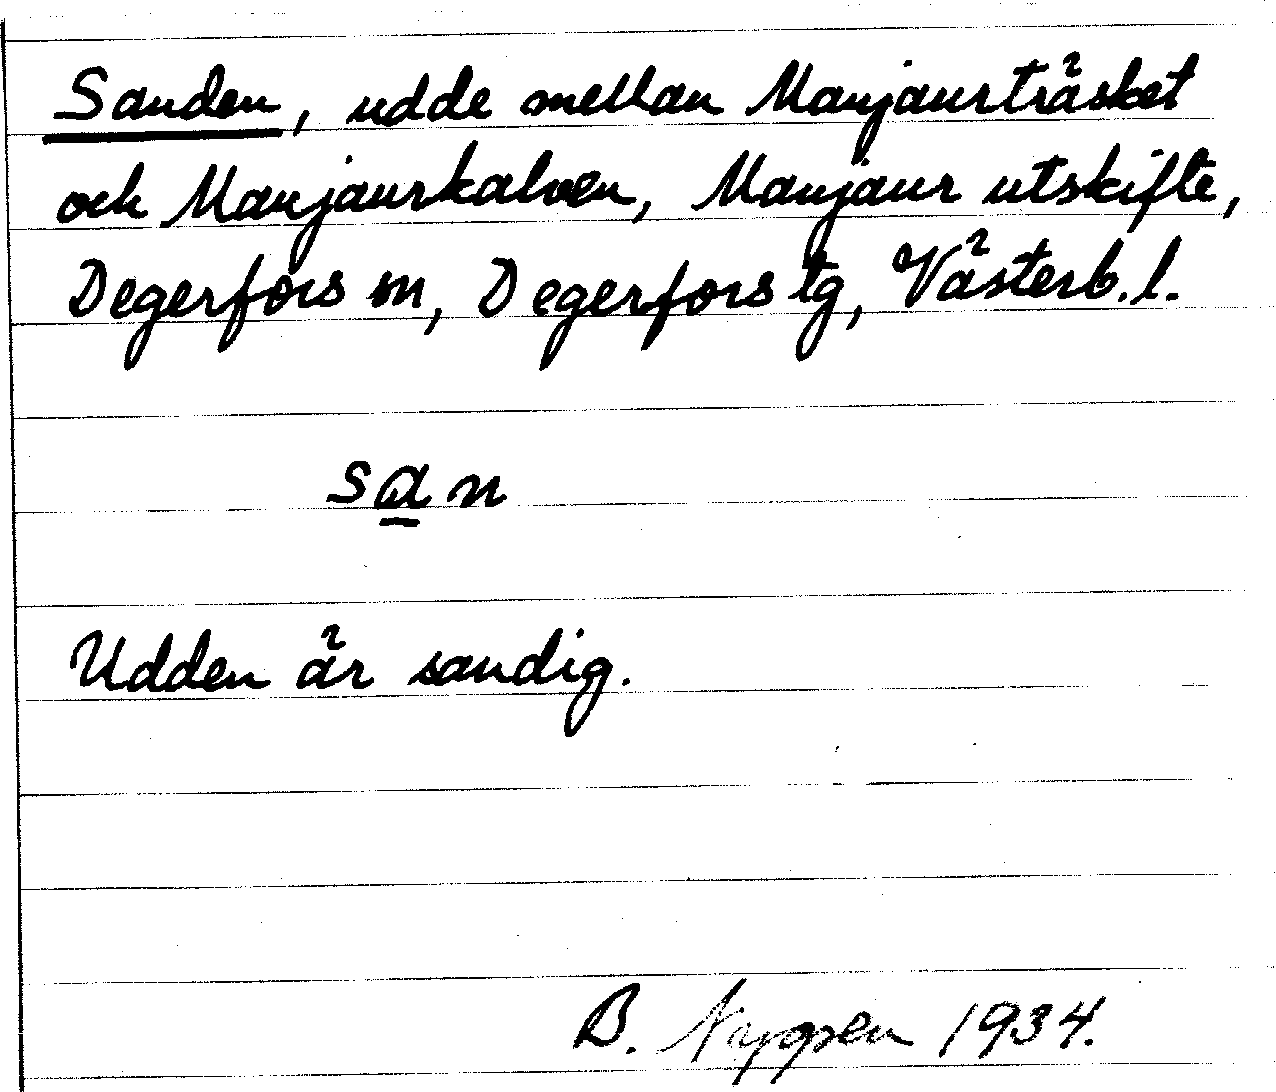 Sanden, udde mellan Manjaurträsket
och Manjaurkalven, Manjaur utskifte,
Degerfors sn, Degerfors tg, Västerb. l.
san
Udden är sandig.
B. Nygren 1934.